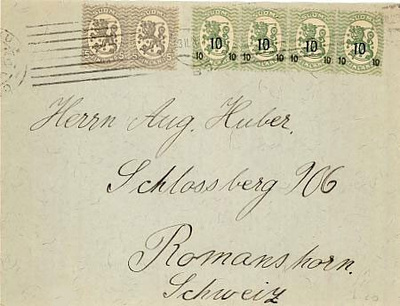 SUOMI SUOMI
10 10 10 10
10 10 10 10 10 10 10 10
Herrn Aug. Huber.
Schlossberg 906
Romanshorn.
Schweiz